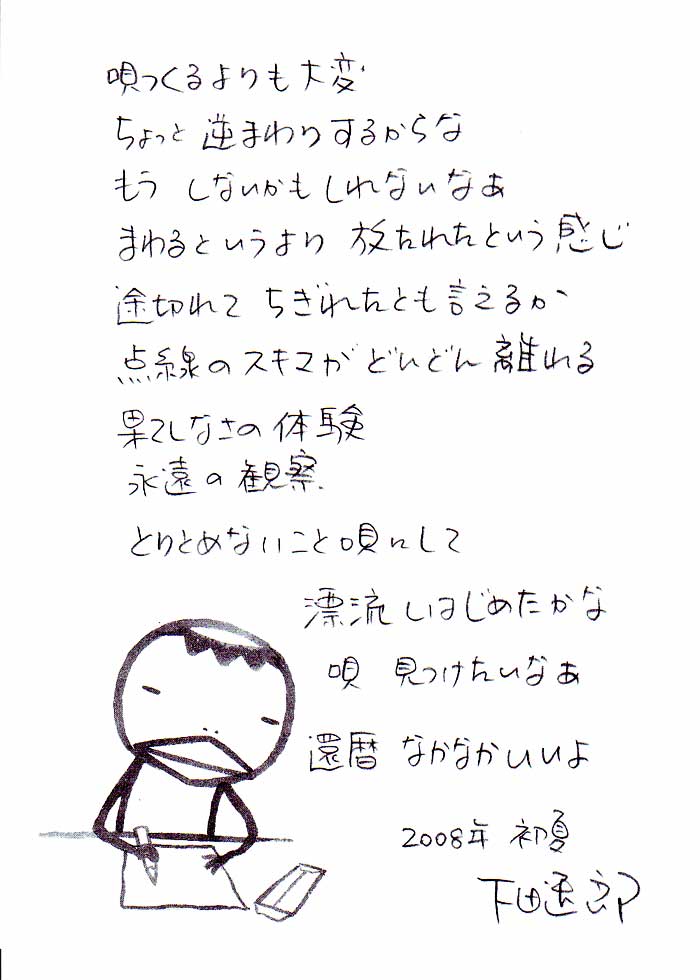 唄つくるよりも大変
ちょっと 逆まわりするからな
もう しないかもしれないなぁ
まわるというより 放たれたという感じ
途切れて ちぎれたとも言えるか
点線のスキマが どんどん離れる
果てしなさの体験
永遠の観察
とりとめないこと唄にして
漂流しはじめたかな
唄 見つけたいなぁ
還暦 なかなかいいよ
2008年 初夏
下田逸郎